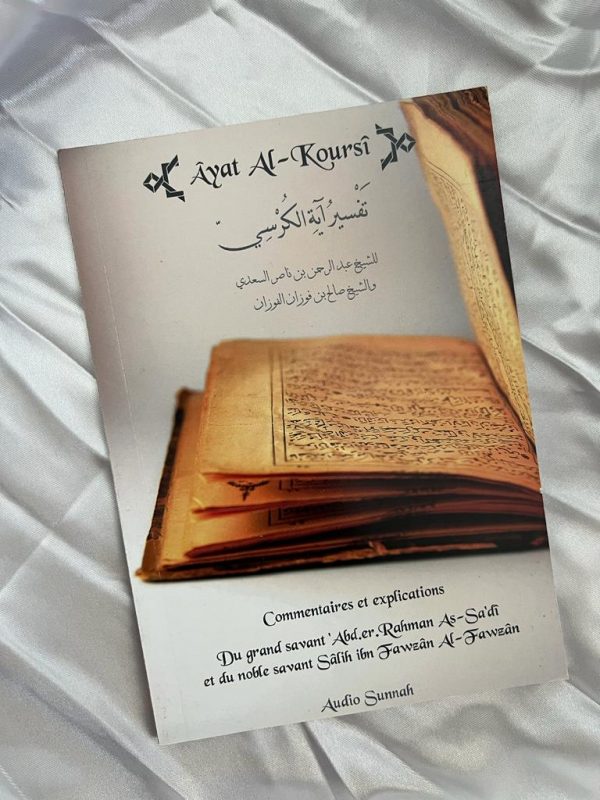 Âyat Al-Koursî
تَفْسِيرُ آيَةِ الكُرْسِيِّ
للشيخ عبد الرحمن بن ناصر السعدي
والشيخ صالح بن فوزان الفوزان
Commentaires et explications
Du grand savant 'Abd.er.Rahman As-Sa'dî
et du noble savant Sâlih ibn Fawzân Al-Fawzân
Audio Sunnah